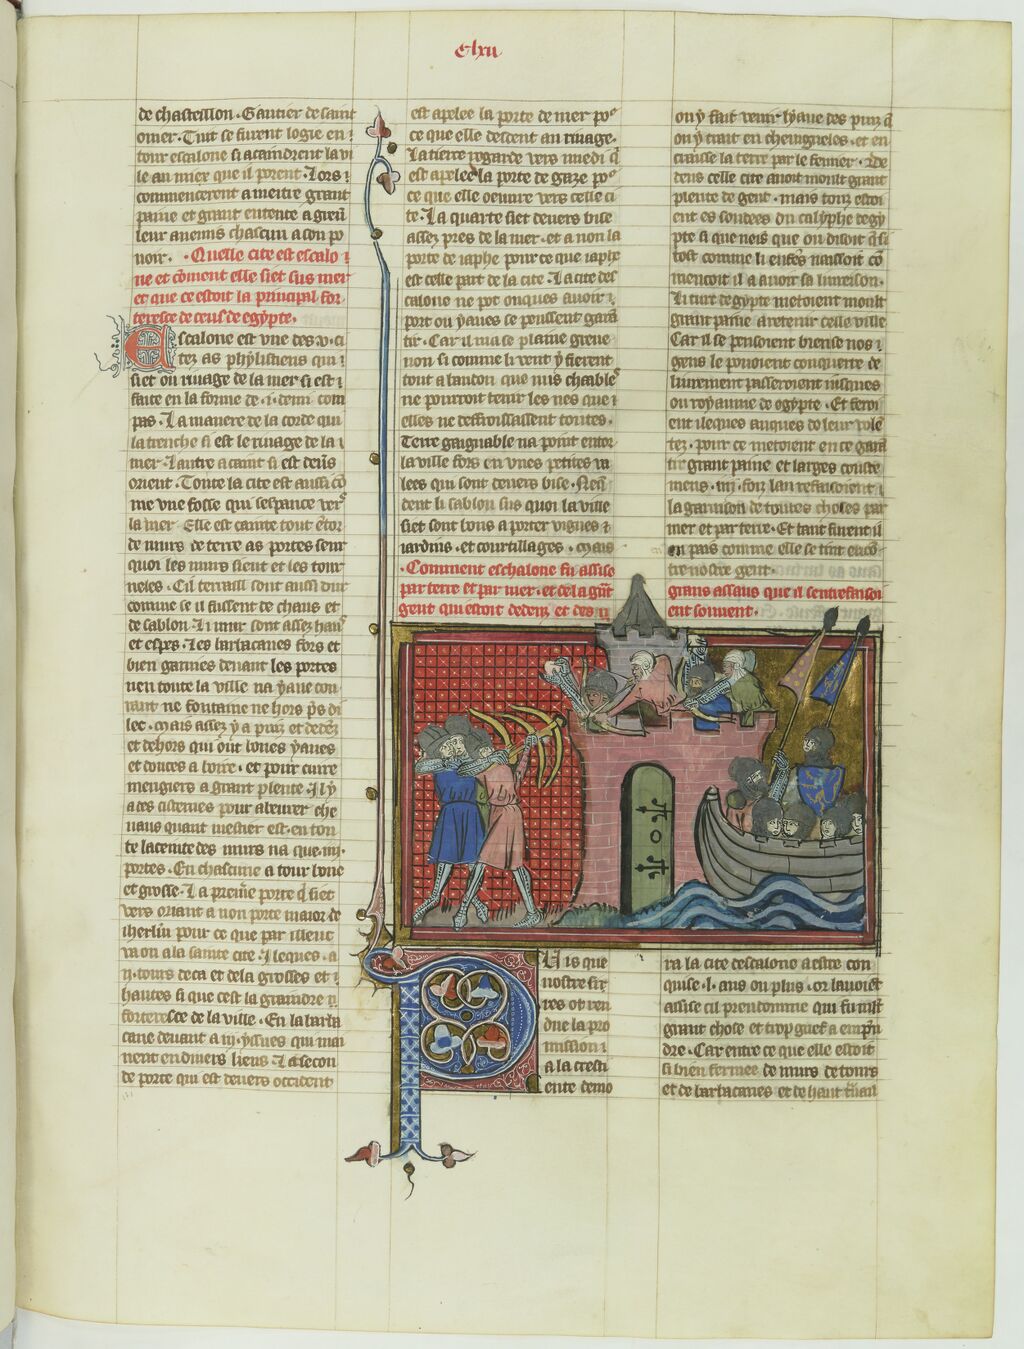 clxii
de chasteillon. Gautier de saint
omer. Tuit se furent logie en
tour escalone si acaindrent la vi
le au miex que il porent. Lors
commencerent a mettre grant
paine et grant entente a greu
leur anemis chascun a son po
uoir.
Quelle cite est escalo
ne et coment elle siet sus mer
et que ce estoit la principal for
teresce de ceus de egypte.
Escalone est vne des .v. ci
tez as phylistiens qui
siet ou riuage de la mer si est
faite en la forme de .i. demi com
pas. La maniere de la corde qui
la trenche si est le riuage de la
mer. Lautre acaint si est deuers
orient. Toute la cite est aussi co
me vne fosse qui sespance vers
la mer. Elle est cainte tout entor
de murs de terre as portes seur
quoi les murs sieent et les tour
neles. Cil terrail sont aussi dur
comme se il fussent de chaus et
de sablon. Li mur sont assez haut
et espes. Les barbacanes fors et
bien garnies deuant les portes
nen toute la ville na yaue cou
rant ne fontaine ne hors pres di
lec. mais assez y a puiz et dedenz
et dehors qui ont bones yaues
et douces a boire. et pour cuire
mengiers a grant plente. Il y
a des cisternes pour abeurer che
uaus quant mestier est. en tou
te lacente des murs na que .iiii.
portes. En chascune a tour bone
et grosse. La premiere porte qui siet
vers oriant a non porte maior de
iherlm pour ce que par illeuc
va on a la sainte cite. Ileques a
.ii. tours deca et dela grosses et
hautes si que cest la graindre
forteresce de la ville. En la barba
cane deuant a .iii. yssues qui mai
nent en diuers lieus. La secon
de porte qui est deuers occident
est apelee la porte de mer por
ce que elle descent au riuage.
La tierce regarde vers miedi qui
est apelee la porte de gaze por
ce que elle oeuure vers celle ci
te. La quarte siet deuers bise
assez pres de la mer. et a non la
porte de iaphe pour ce que iaphe
est celle part de la cite. La cite des
calone ne pot onques auoir
port ou yaues se peussent garan
tir. Car il ni a se plaine greue
non si comme li vent y fierent
tout a bandon que nuis chables
ne pourroit tenir les nes que
elles ne deffroissassent toutes.
Terre gaignable na point entor
la ville fors en vnes petites va
lees qui sont deuers bise. Neis
dont li sablon sus quoi la ville
siet sont bons a porter vignes
iardins. et courtillages. mais
Comment eschalone fu assise
par terre et par mer. et cil a grant
gent qui estoit dedenz et des
on y fait venir lyaue des puiz que
on y trait en cheuigneles. et en
craisse la terre par le femier. De
dens celle cite auoit moult grant
plente de gent. mais touz estoi
ent es soudees du calyphe degy
pte si que neis que on disoit que si
tost comme li enfes naissoit com
mencoit il a auoir sa liureison.
Li turc degypte metoient moult
grant paine a retenir celle ville
Car il se pensoient bien se nos
gens le pouoient conquerre de
liurement passeroient iusques
ou royaume de egypte. Et feroi
ent ileques auques de leur volen
tez. pour ce metoient en ce garan
tir grant paine et larges couste
mens. .iiii. foiz lan refaisoient
la garnison de toutes choses par
mer et par terre. Et tant furent il
en pais comme elle se tint enco
tre nostre gent.
grans assaus que il sentrefaisoi
ent souuent.
Puis que
nostre sir
res ot ren
due la pro
mission
a la cresti
ente demo
ra la cite descalone a estre con
quise .l. ans ou plus. or lauoient
assise cil preudomme qui fu mlt
grant chose et trop grief a empren
dre. Car entre ce que elle estoit
si bien fermee de murs de tours
et de barbacanes et de haut terrail